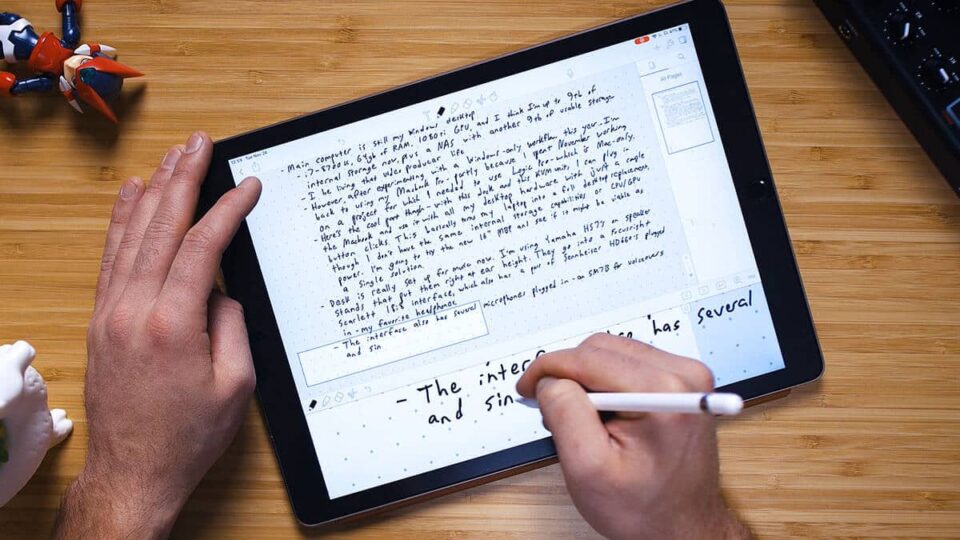 12:59 Tue Nov 26
All Pages
- Main computer is still my windows desktop
- i7-5820K, 64gb of RAM, 1080ti GPU, and I think I'm up to 9tb of
internal storage now, plus a NAS with another 9tb of usable storage
- I be living that video producer life
- However, after experimenting with a Windows-only workflow this year I'm
back to using my Macbook Pro partly because I spent November working
on a project for which I needed to use Logic Pro - which is Mac-only.
- Here's the cool part though - with this dock and this KVM unit, I can plug in
the Macbook and use it with all my desktop hardware with just a couple
button clicks. This basically turns my laptop into a full desktop replacement,
though I don't have the same internal storage capabilities or CPU/GPU
power. I'm going to try the new 16" MBP and see if it might be viable as
a single solution.
- Desk is really set up for audio now. I'm using Yamaha HS7s on speaker
stands that put them right at ear height. They go into a Focusrite
Scarlett 18i8 interface, which also has a pair of Sennheiser HD660s plugged
in - my favorite headphones.
- The interface also has several microphones plugged in - an SM7B for voiceovers
and sin
- The inter has several
and sin